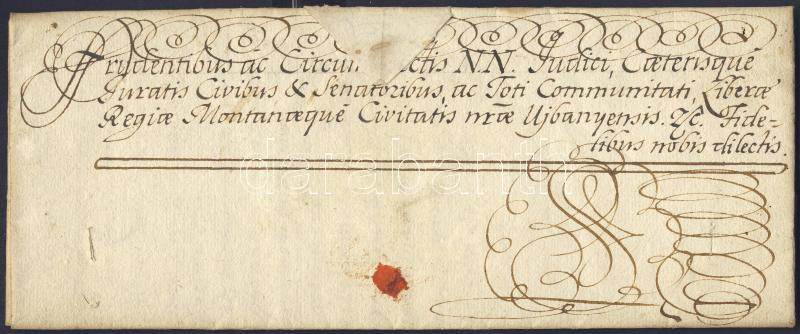 Prudentibus ac Circum ctis NN. Judici, Cæterisquè
Juratis Civibus & Senatoribus, ac Toti Communitati, Liberæ
Regiæ Montanæquè Civitatis nræ Ujbanyensis. &c Fide=
libus nobis dilectis.
darabanth